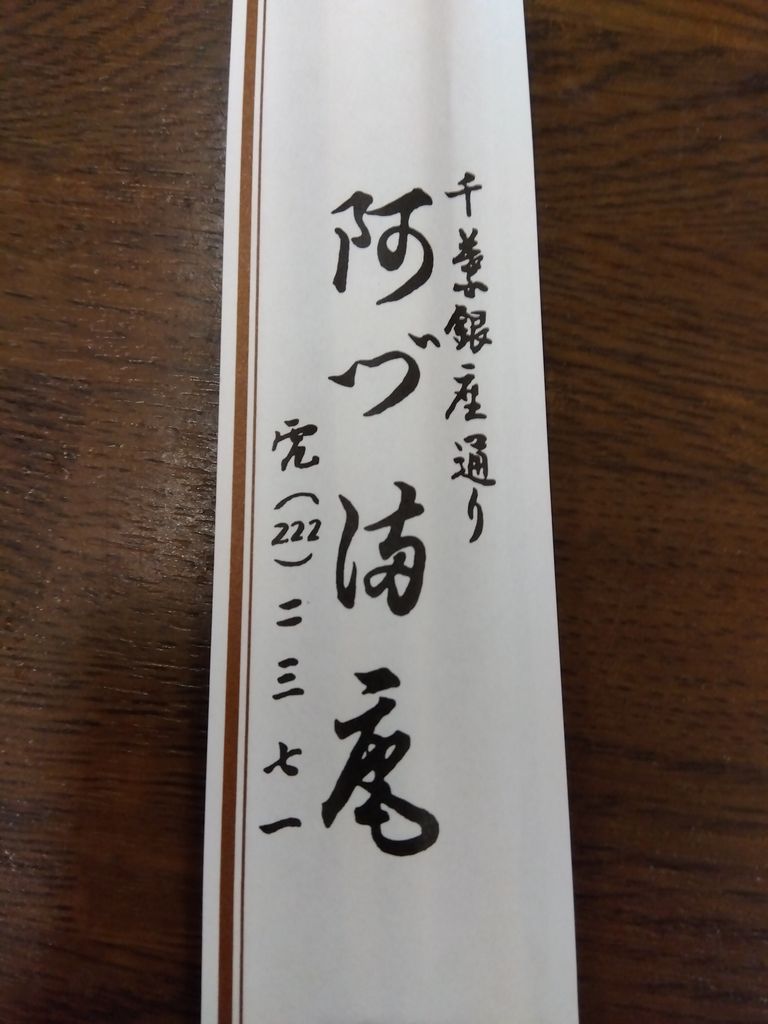 千葉銀座通り
阿づ満庵
電(222)二三七一